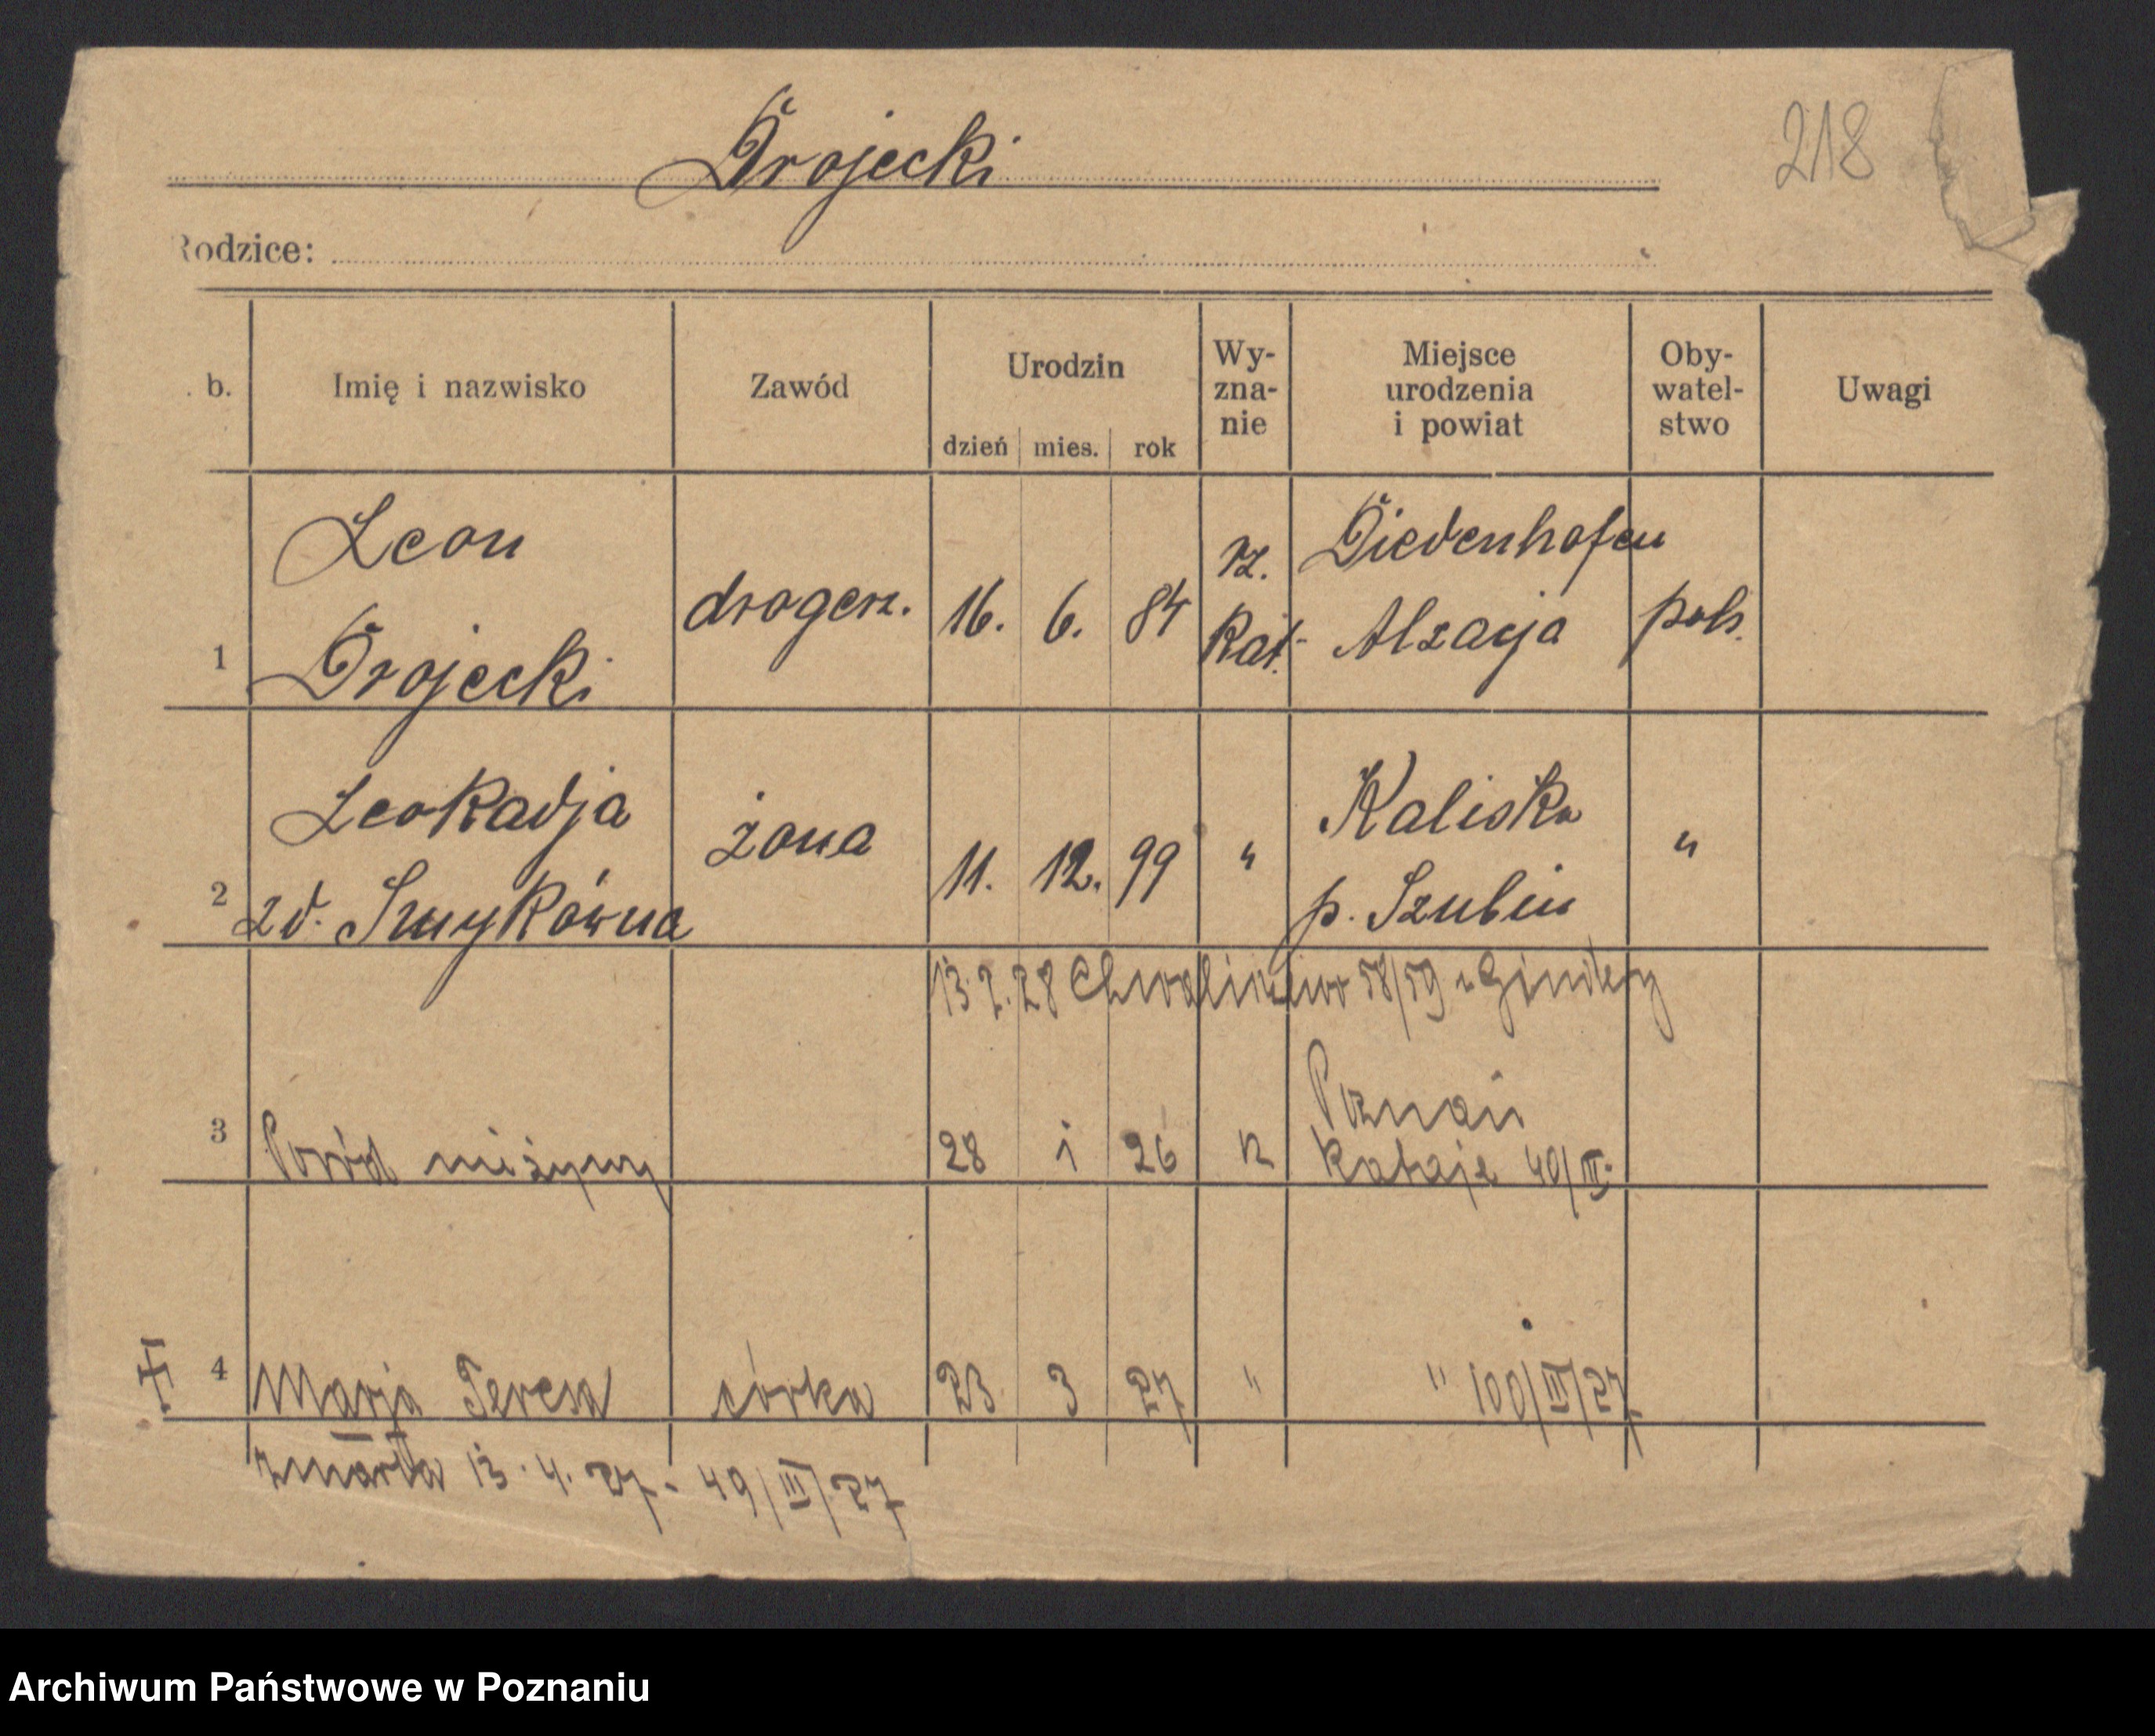 Drojecki
218
Rodzice:
b. Imię i nazwisko Zawód Urodzin dzień mies. rok Wy-zna-nie Miejsce urodzenia i powiat Oby-watel-stwo Uwagi
1 Leon Drojecki drogerz. 16. 6. 84 rz. kat. Diedenhofen Alzacja pols.
2 Leokadja zd. Smykówna żona 11. 12. 99 " Kaliska p. Szubin "
13.2.28 Chwaliszewo 58/59 u
3 Poród nieżywy 28 1 26 rz Poznań Rataje 40/III.
4 Marja Teresa córka 23 3 27 " " 100/III/27
zmarła 13.4.27. 49/III/27
Archiwum Państwowe w Poznaniu